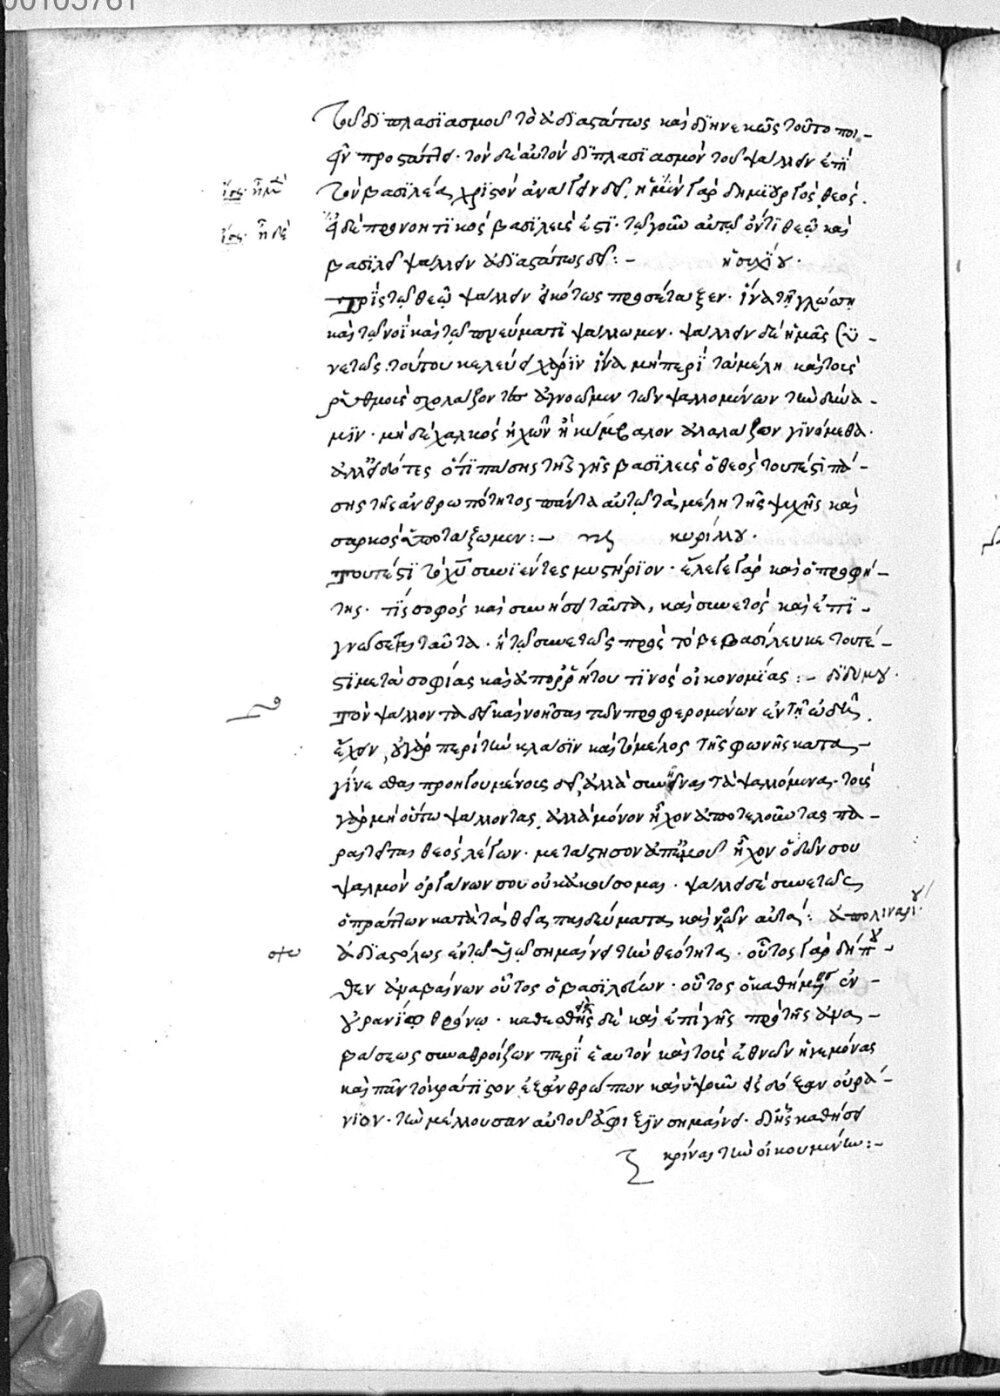 00105761
τοῦ διπλασιασμοῦ τὸ ἀδιαστάτως καὶ διηνεκῶς τοῦτο ποι-
εῖν προστάττει· τὸν δὲ αὐτὸν διπλασιασμὸν τοῦ ψάλλειν ἐπὶ
τὸν βασιλέα χριστὸν ἀνάγειν δεῖ, ἡ μὲν γὰρ δημιουργὸς θεός.
ἡ δὲ προνοητικὸς βασιλεὺς ἐστί· τῷ γοῦν αὐτῷ ὄντι θεῷ καὶ
βασιλεῖ ψάλλειν ἀδιαστάτως δεῖ:– ἡσυχίου·
τρὶς τῷ θεῷ ψάλλειν εἰκότως προσέταξεν· ἵνα τῇ γλώσσῃ
καὶ τῷ νοῒ καὶ τῷ πνεύματι ψάλλωμεν· ψάλλειν δὲ ἡμᾶς συ-
νετῶς τούτου κελεύει χάριν ἵνα μὴ περὶ τὰ μέλη καὶ τοῖς
ῥυθμοῖς σχολάζοντες ἀγνοῶμεν τῶν ψαλλομένων τὴν δύνα-
μιν· μὴ δὲ χαλκὸς ἠχῶν ἢ κύμβαλον ἀλαλάζον γινόμεθα·
ἀλλ' εἰδότες ὅτι πάσης τῆς γῆς βασιλεὺς ὁ θεὸς τουτέστι πά-
σης τῆς ἀνθρωπότητος πάντα αὐτῷ τὰ μέλη τῆς ψυχῆς καὶ
σαρκὸς ὑποτάξωμεν:– κυρίλλου·
τουτέστι τὸ χῦ συνιέντες μυστήριον· ἔλεγε γὰρ καὶ ὁ προφή-
της· τίς σοφὸς καὶ συνήσει ταῦτα, καὶ συνετὸς καὶ ἐπι-
γνώσεται ταῦτα· ἢ τῷ συνετῶς πρὸς τὸ βεβασίλευκε τουτέ-
στι μετὰ σοφίας καὶ ἀπορρήτου τινὸς οἰκονομίας:– διδύμου·
τὸν ψάλλοντα δεῖ καὶ νοήσας τῶν προφερομένων ἐν τῇ ᾠδῇ
ἔχειν, οὐ γὰρ περὶ τὴν κλάσιν καὶ τὸ μέλος τῆς φωνῆς κατα-
γίνεσθαι προηγουμένοις δεῖ, ἀλλὰ συνιέναι τὰ ψαλλόμενα· τοὺς
γὰρ μὴ οὕτω ψάλλοντας, ἀλλὰ μόνον ἦχον ἀποτελοῦντας πα-
ραιτεῖται θεὸς λέγων· μετάστησον ἀπ' ἐμοῦ ἦχον ᾠδῶν σου
ψαλμὸν ὀργάνων σου οὐκ ἀκούσομαι· ψάλλει δὲ συνετῶς
ὁ πράττων κατὰ τὰ θεῖα παιδεύματα καὶ νοῶν αὐτά: ἀπολιναρίου·
ἀδιαβόλως ἐν τῷ λόγῳ σημαίνει τὴν θεότητα· οὗτος γὰρ δήπου-
θεν ἀναβαίνων οὗτος ὁ βασιλεύων· οὗτος ὁ καθήμενος ἐν
οὐρανίῳ θρόνῳ· καθεσθεὶς δὲ καὶ ἐπὶ γῆς πρὸ τῆς ἀνα-
βάσεως συναθροίζων περὶ ἑαυτὸν καὶ τοὺς ἐθνῶν ἡγεμόνας
καὶ πᾶν τὸ κράτιστον ἐξ ἀνθρώπων καὶ ὑψοῦν εἰς δόξαν οὐρά-
νιον· τὴν μέλλουσαν αὐτοῦ ἄφιξιν σημαίνει· δι' ἧς καθήσει
κρῖναι τὴν οἰκουμένην:–